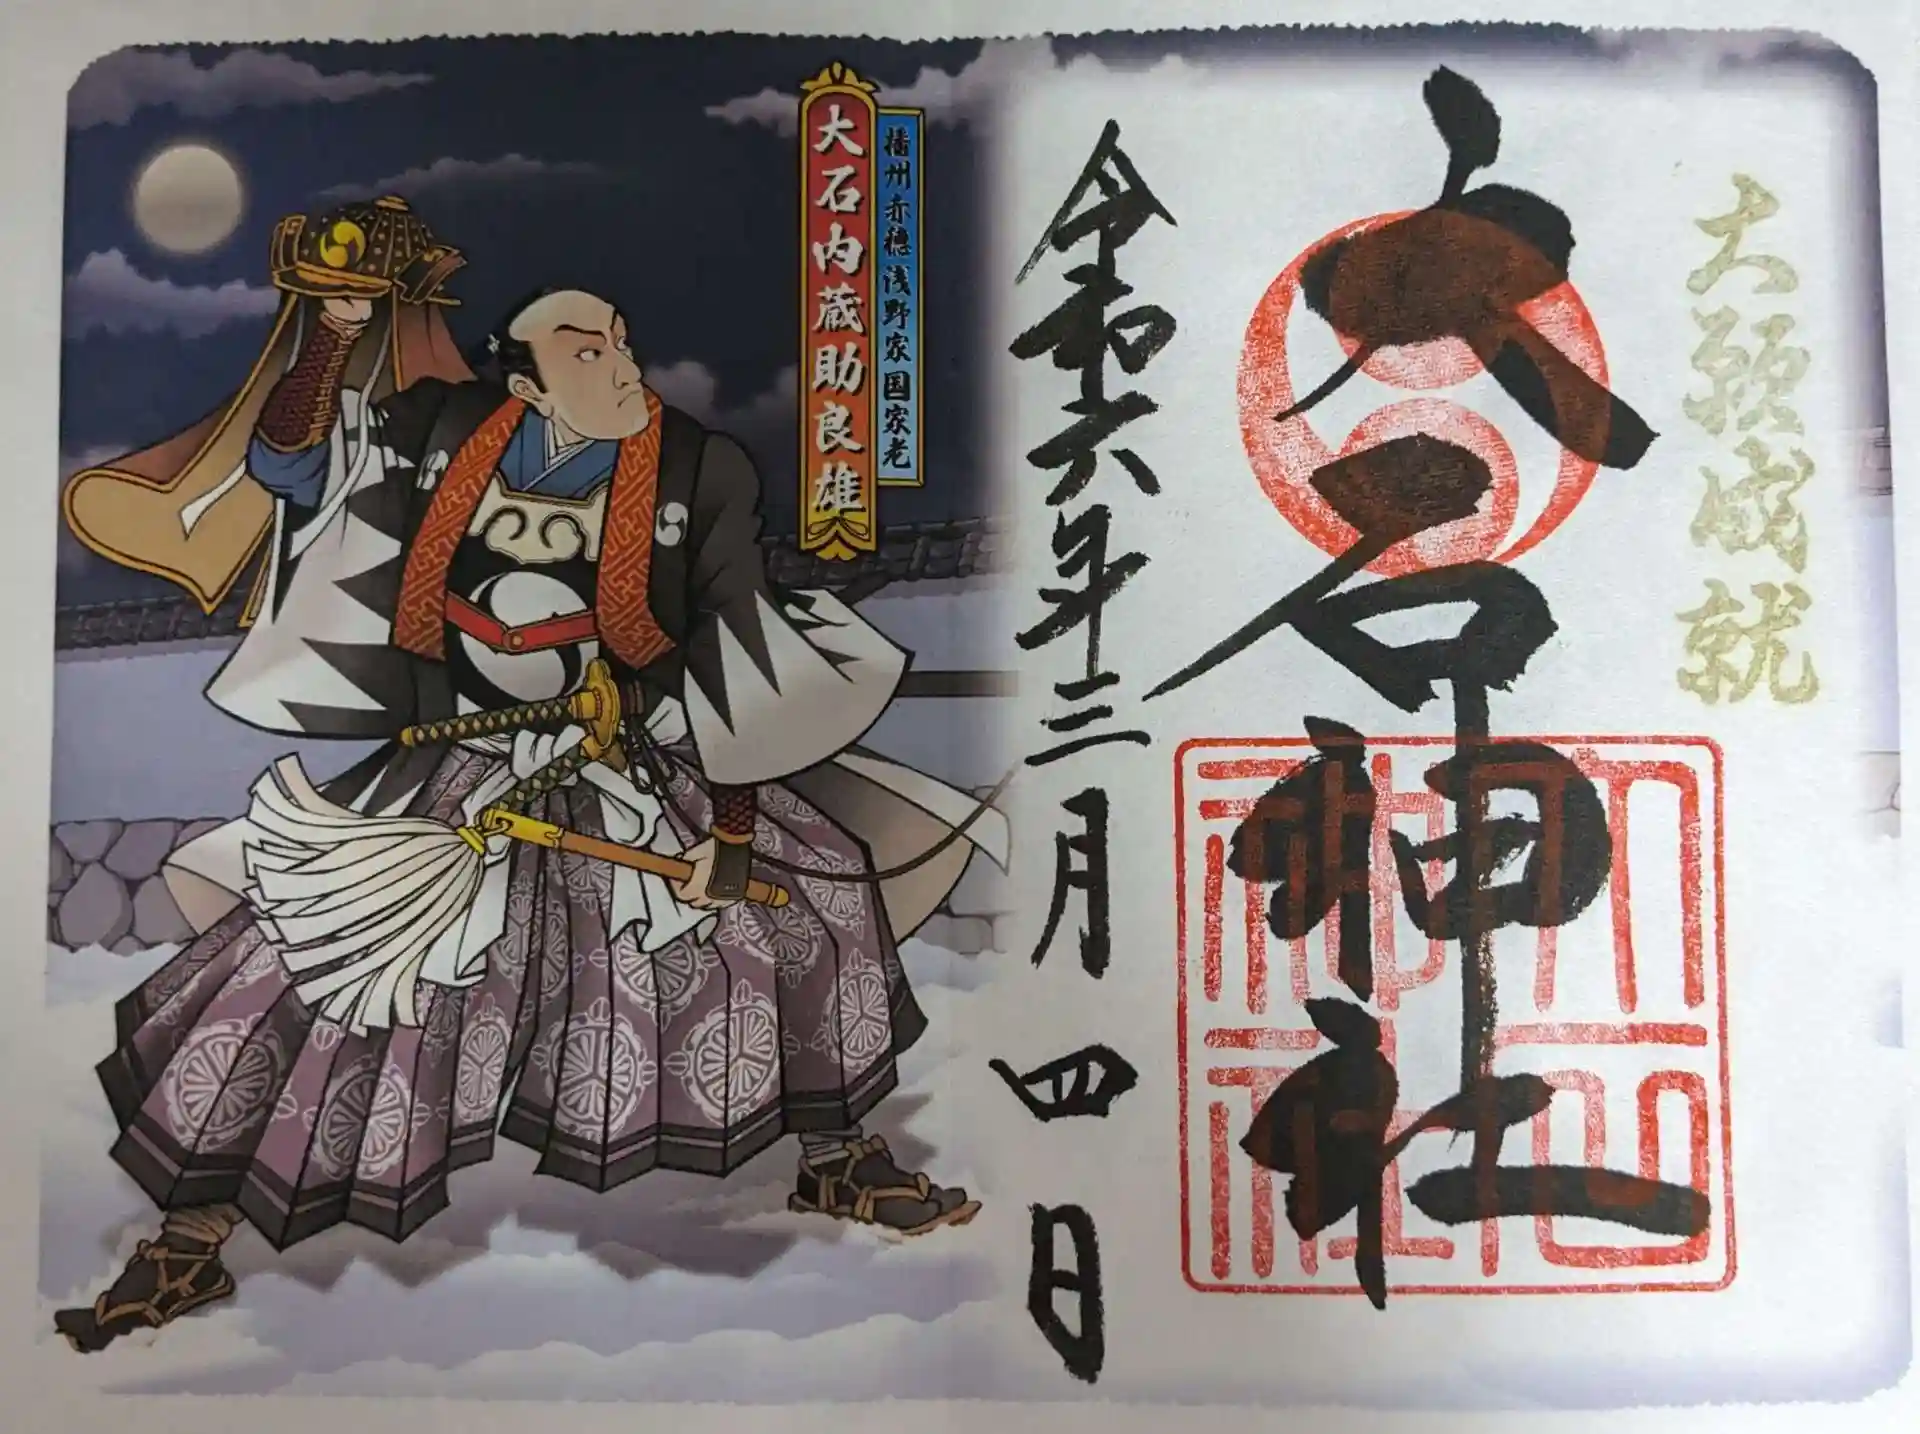 大願成就
大石神社
令和六年三月四日
播州赤穂浅野家国家老
大石内蔵助良雄
大石神社